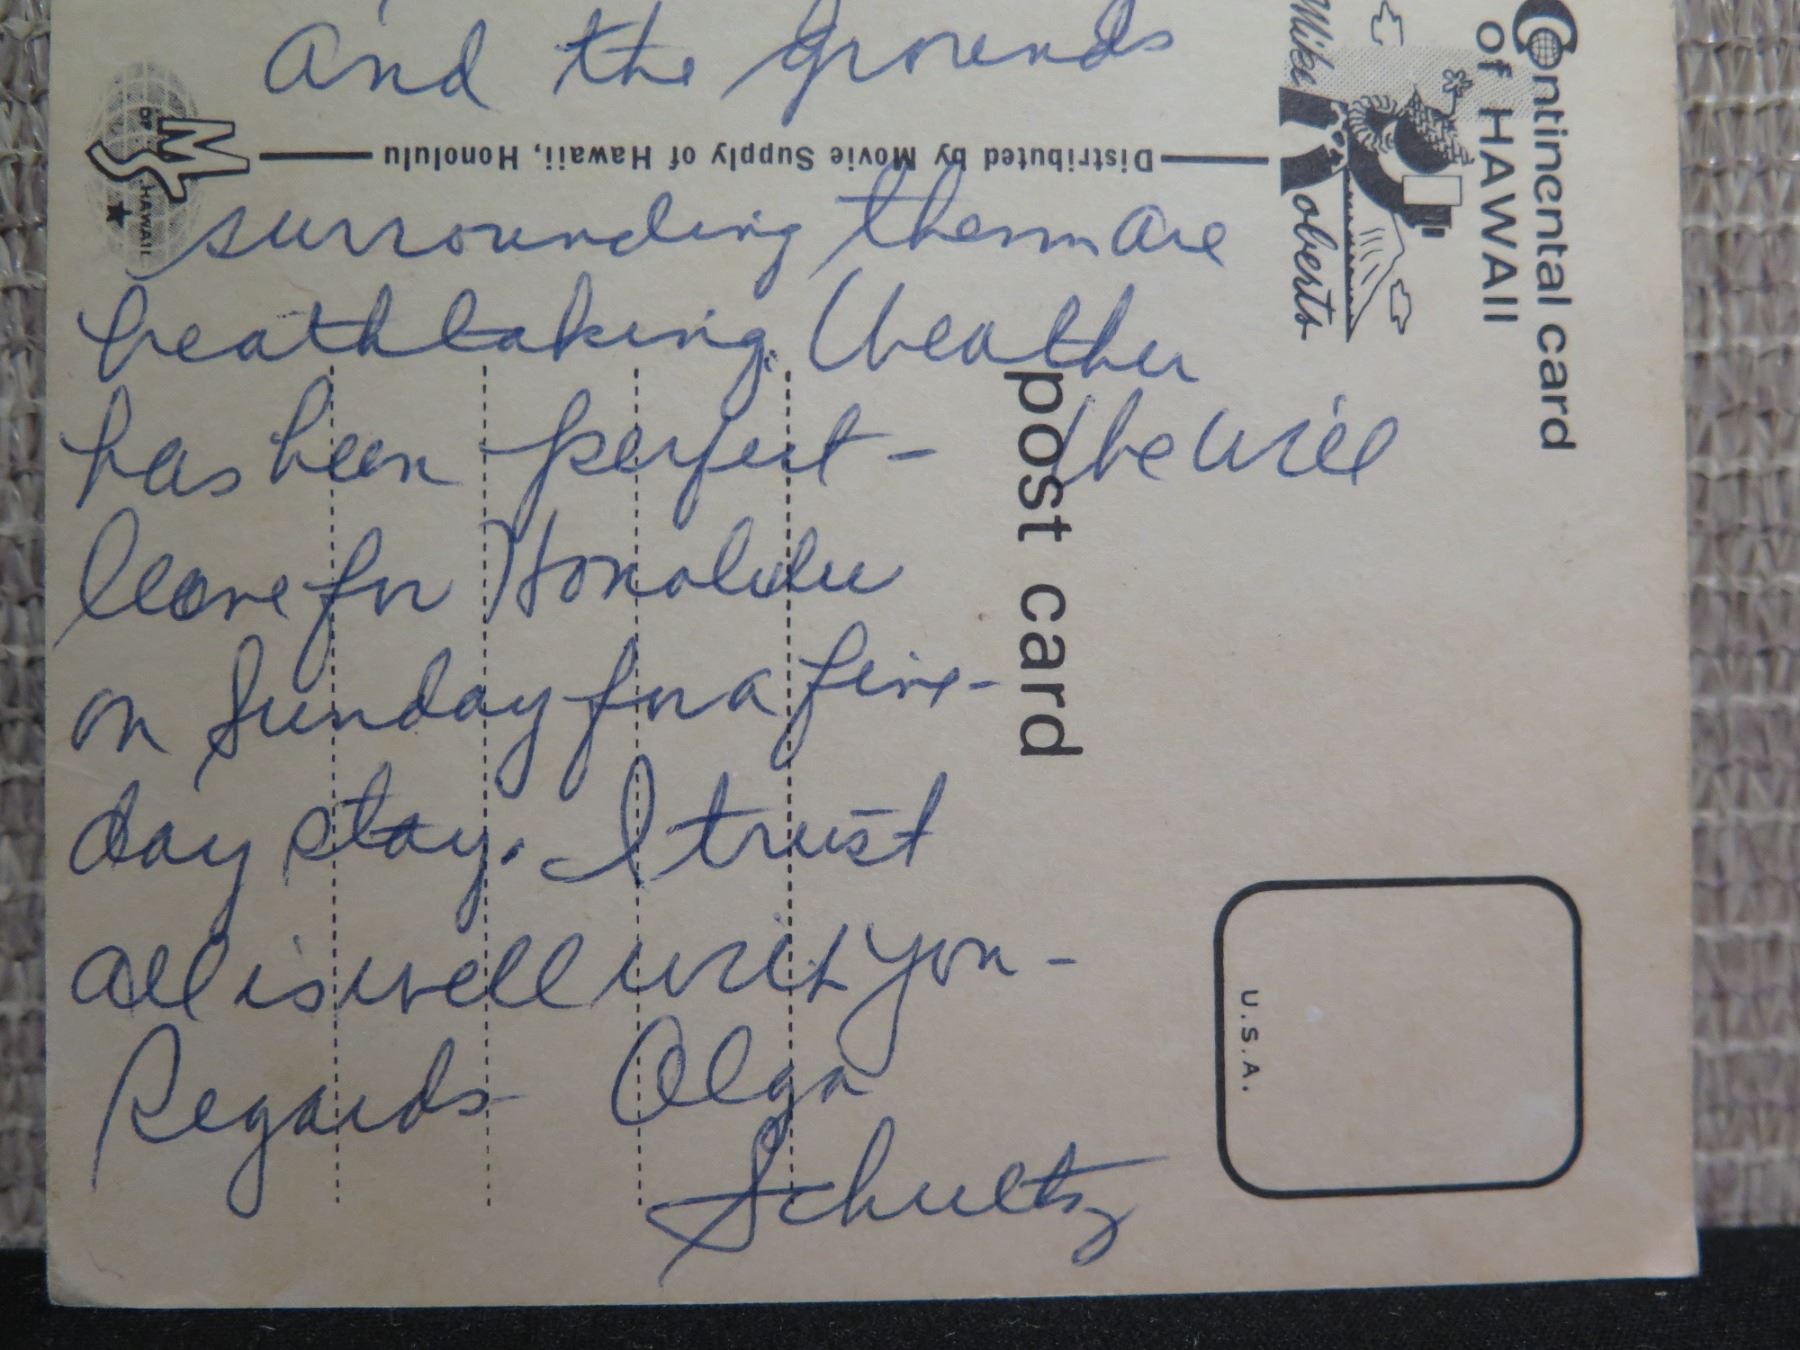 and the grounds
Distributed by Movie Supply of Hawaii, Honolulu
surrounding them are
beathtaking. Weather
has been perfect – We will
leave for Honolulu
on Sunday for a five-
day stay. I trust
all is well with you –
Regards Olga
Schultz
MS
OF
HAWAII
Mike Roberts
Continental card
OF HAWAII
post card
U.S.A.